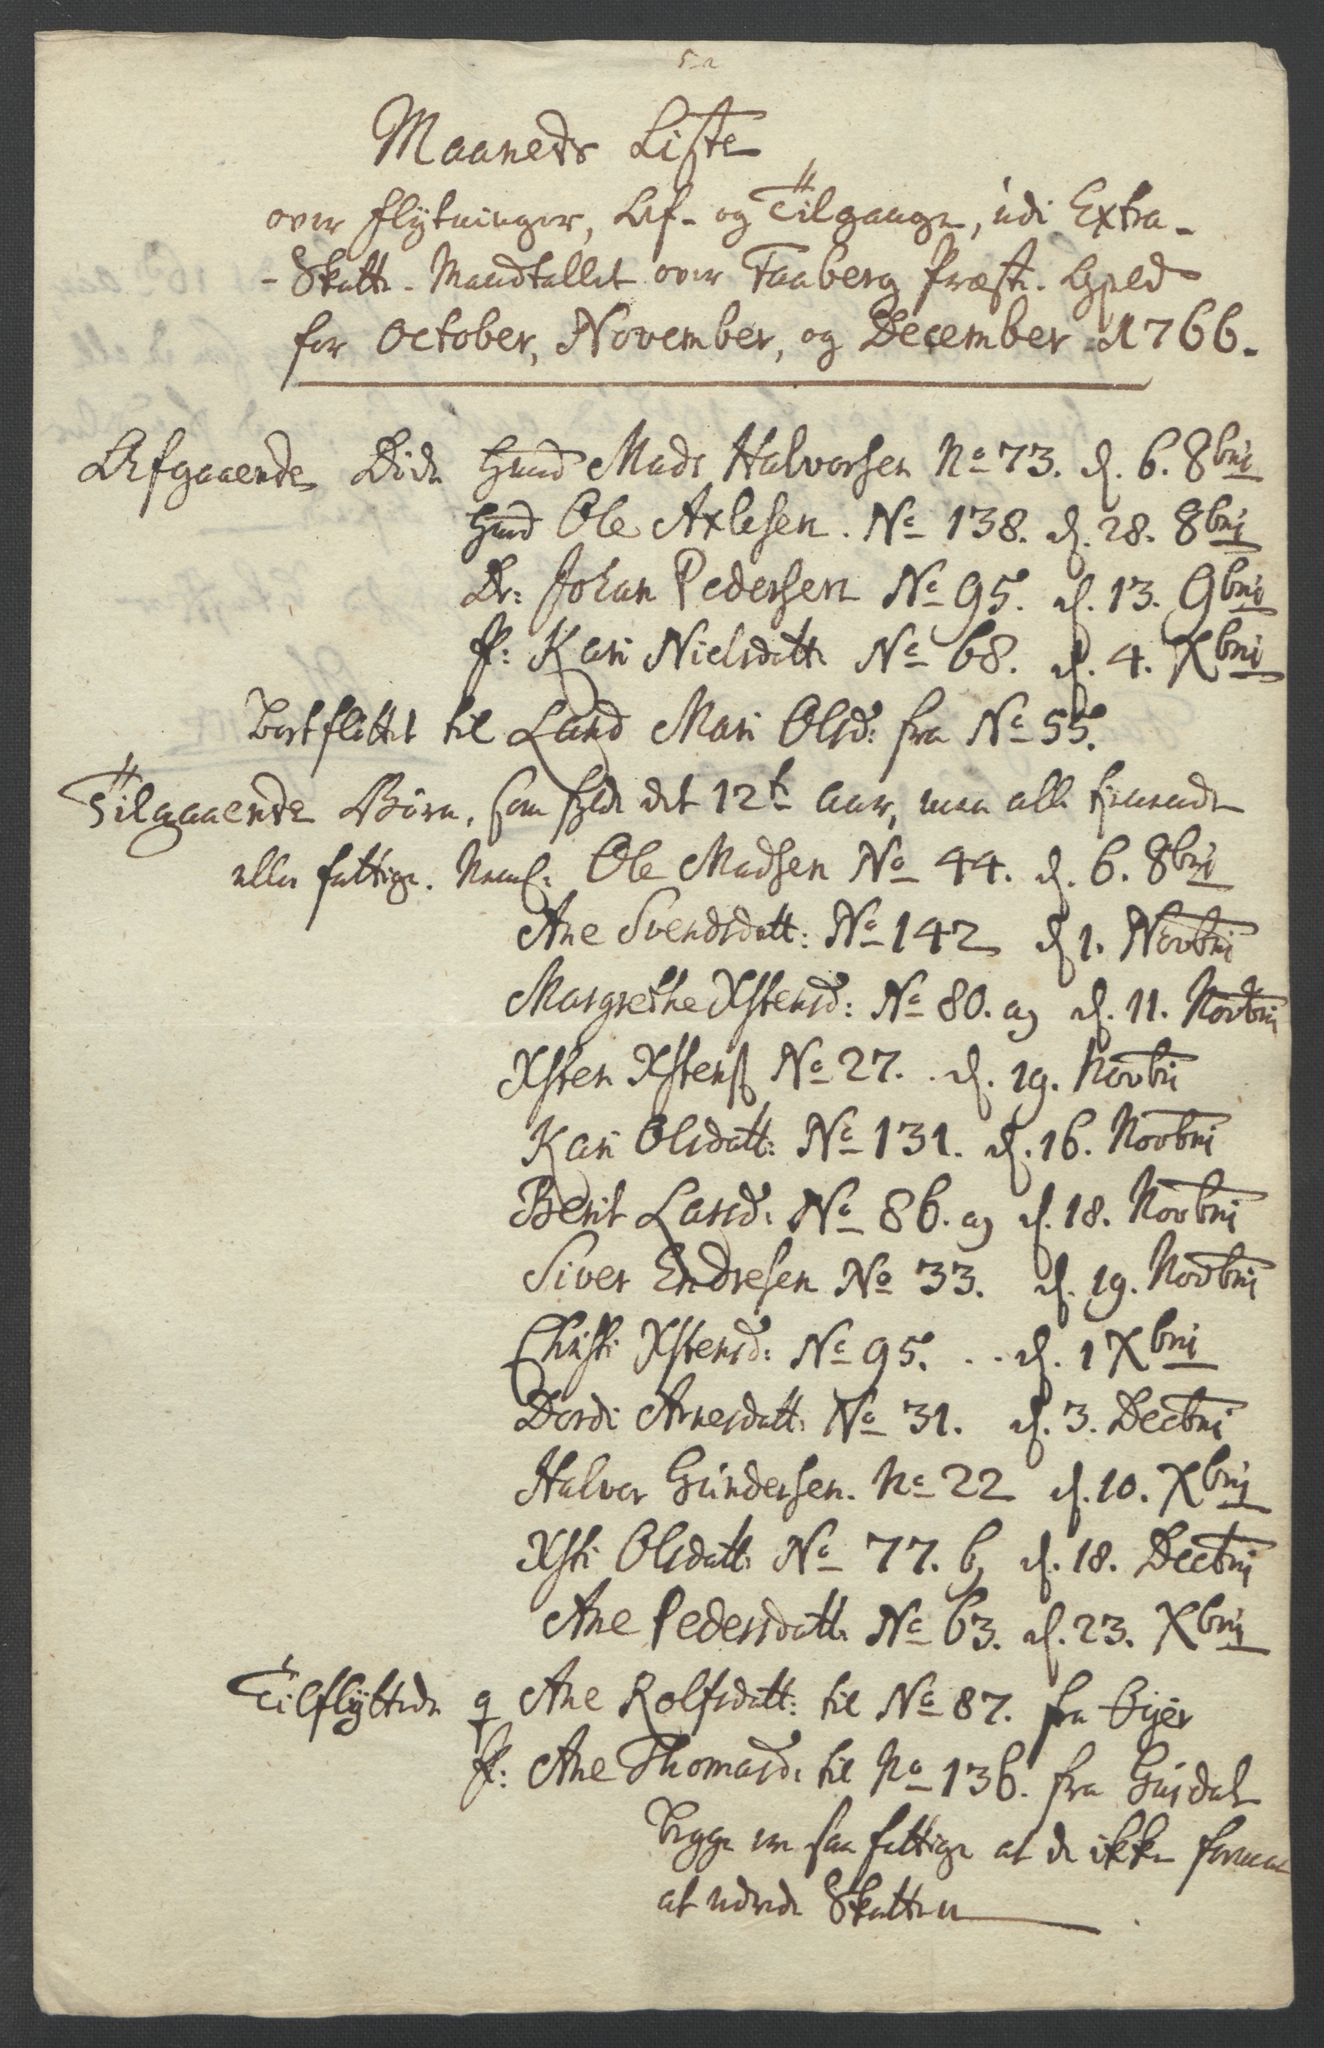 Maaneds Liste
over flÿtninger, Af- og Tilgange, udi Extra-
-Skatte-Mandtallet over Faaberg Præste-Gield
for October, November, og December 1766.
Afgaaende Døde Mads Halvorsen No 73. d. 6. 8bri
Ole Axlesen. No 138. d. 28. 8bri
Dr: Johan Pedersen No 95. d. 13. 9bri
Kari Nielsdatt: No 68. d. 4. Xbri
Bortflÿttet til Land Mari Olsd: fra No 55.
Tilgaaende Børn, som fylde det 12te Aar, men alle tienende
eller fattige. Neml: Ole Madsen No 44. d. 6. 8bri
Ane Svendsdatt: No 142 d 1. Novbri
Margrethe Xstensd: No 80. a, d. 11. Novbri
Xsten Xstens: No 27. d. 19. Novbri
Kari Olsdatt: No 131. d. 16. Novbri
Berit Larsd: No 86. a, d. 18. Novbri
Siver Endresen No 33. d. 19. Novbri
Christi Xstensd: No 95. .. d. 1 Xbri
Dordi Arnesdatt: No 31. d. 3. Decbri
Halvor Gundersen. No 22 d. 10. Xbri
Xsti Olsdatt: No 77. b, d. 18. Decbri
Ane Pedersdatt: No 63. d. 23. Xbri
Tilflÿttede Ane Rolfsdatt: til No 87. fra Öÿer
Ane Thomasd: til No 136. fra Gusdal
begge ere saa fattige at de ikke formaae
at udrede Skatten